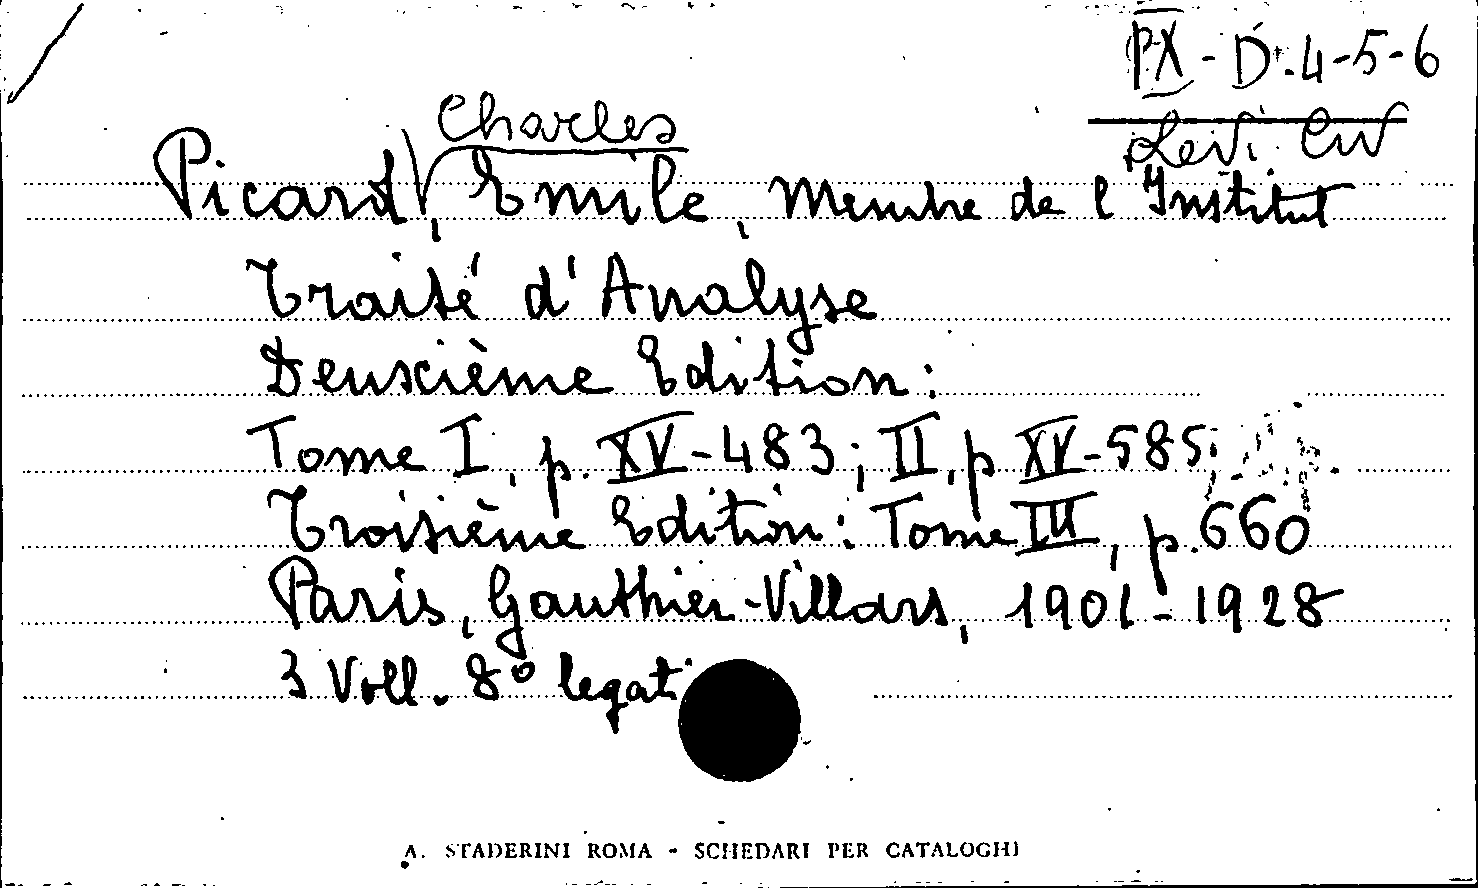 PX - D.4-5-6
Levi. Civ
Charles
Picard, Emile, Membre de l'Institut
Traité d'Analyse
Deuxième Edition:
Tome I, p. XV-483; II, p XV-585;
Troisième Edition: Tome III, p. 660
Paris, Gauthier-Villars, 1901-1928
3 Voll. 8º legati
A. STADERINI ROMA - SCHEDARI PER CATALOGHI